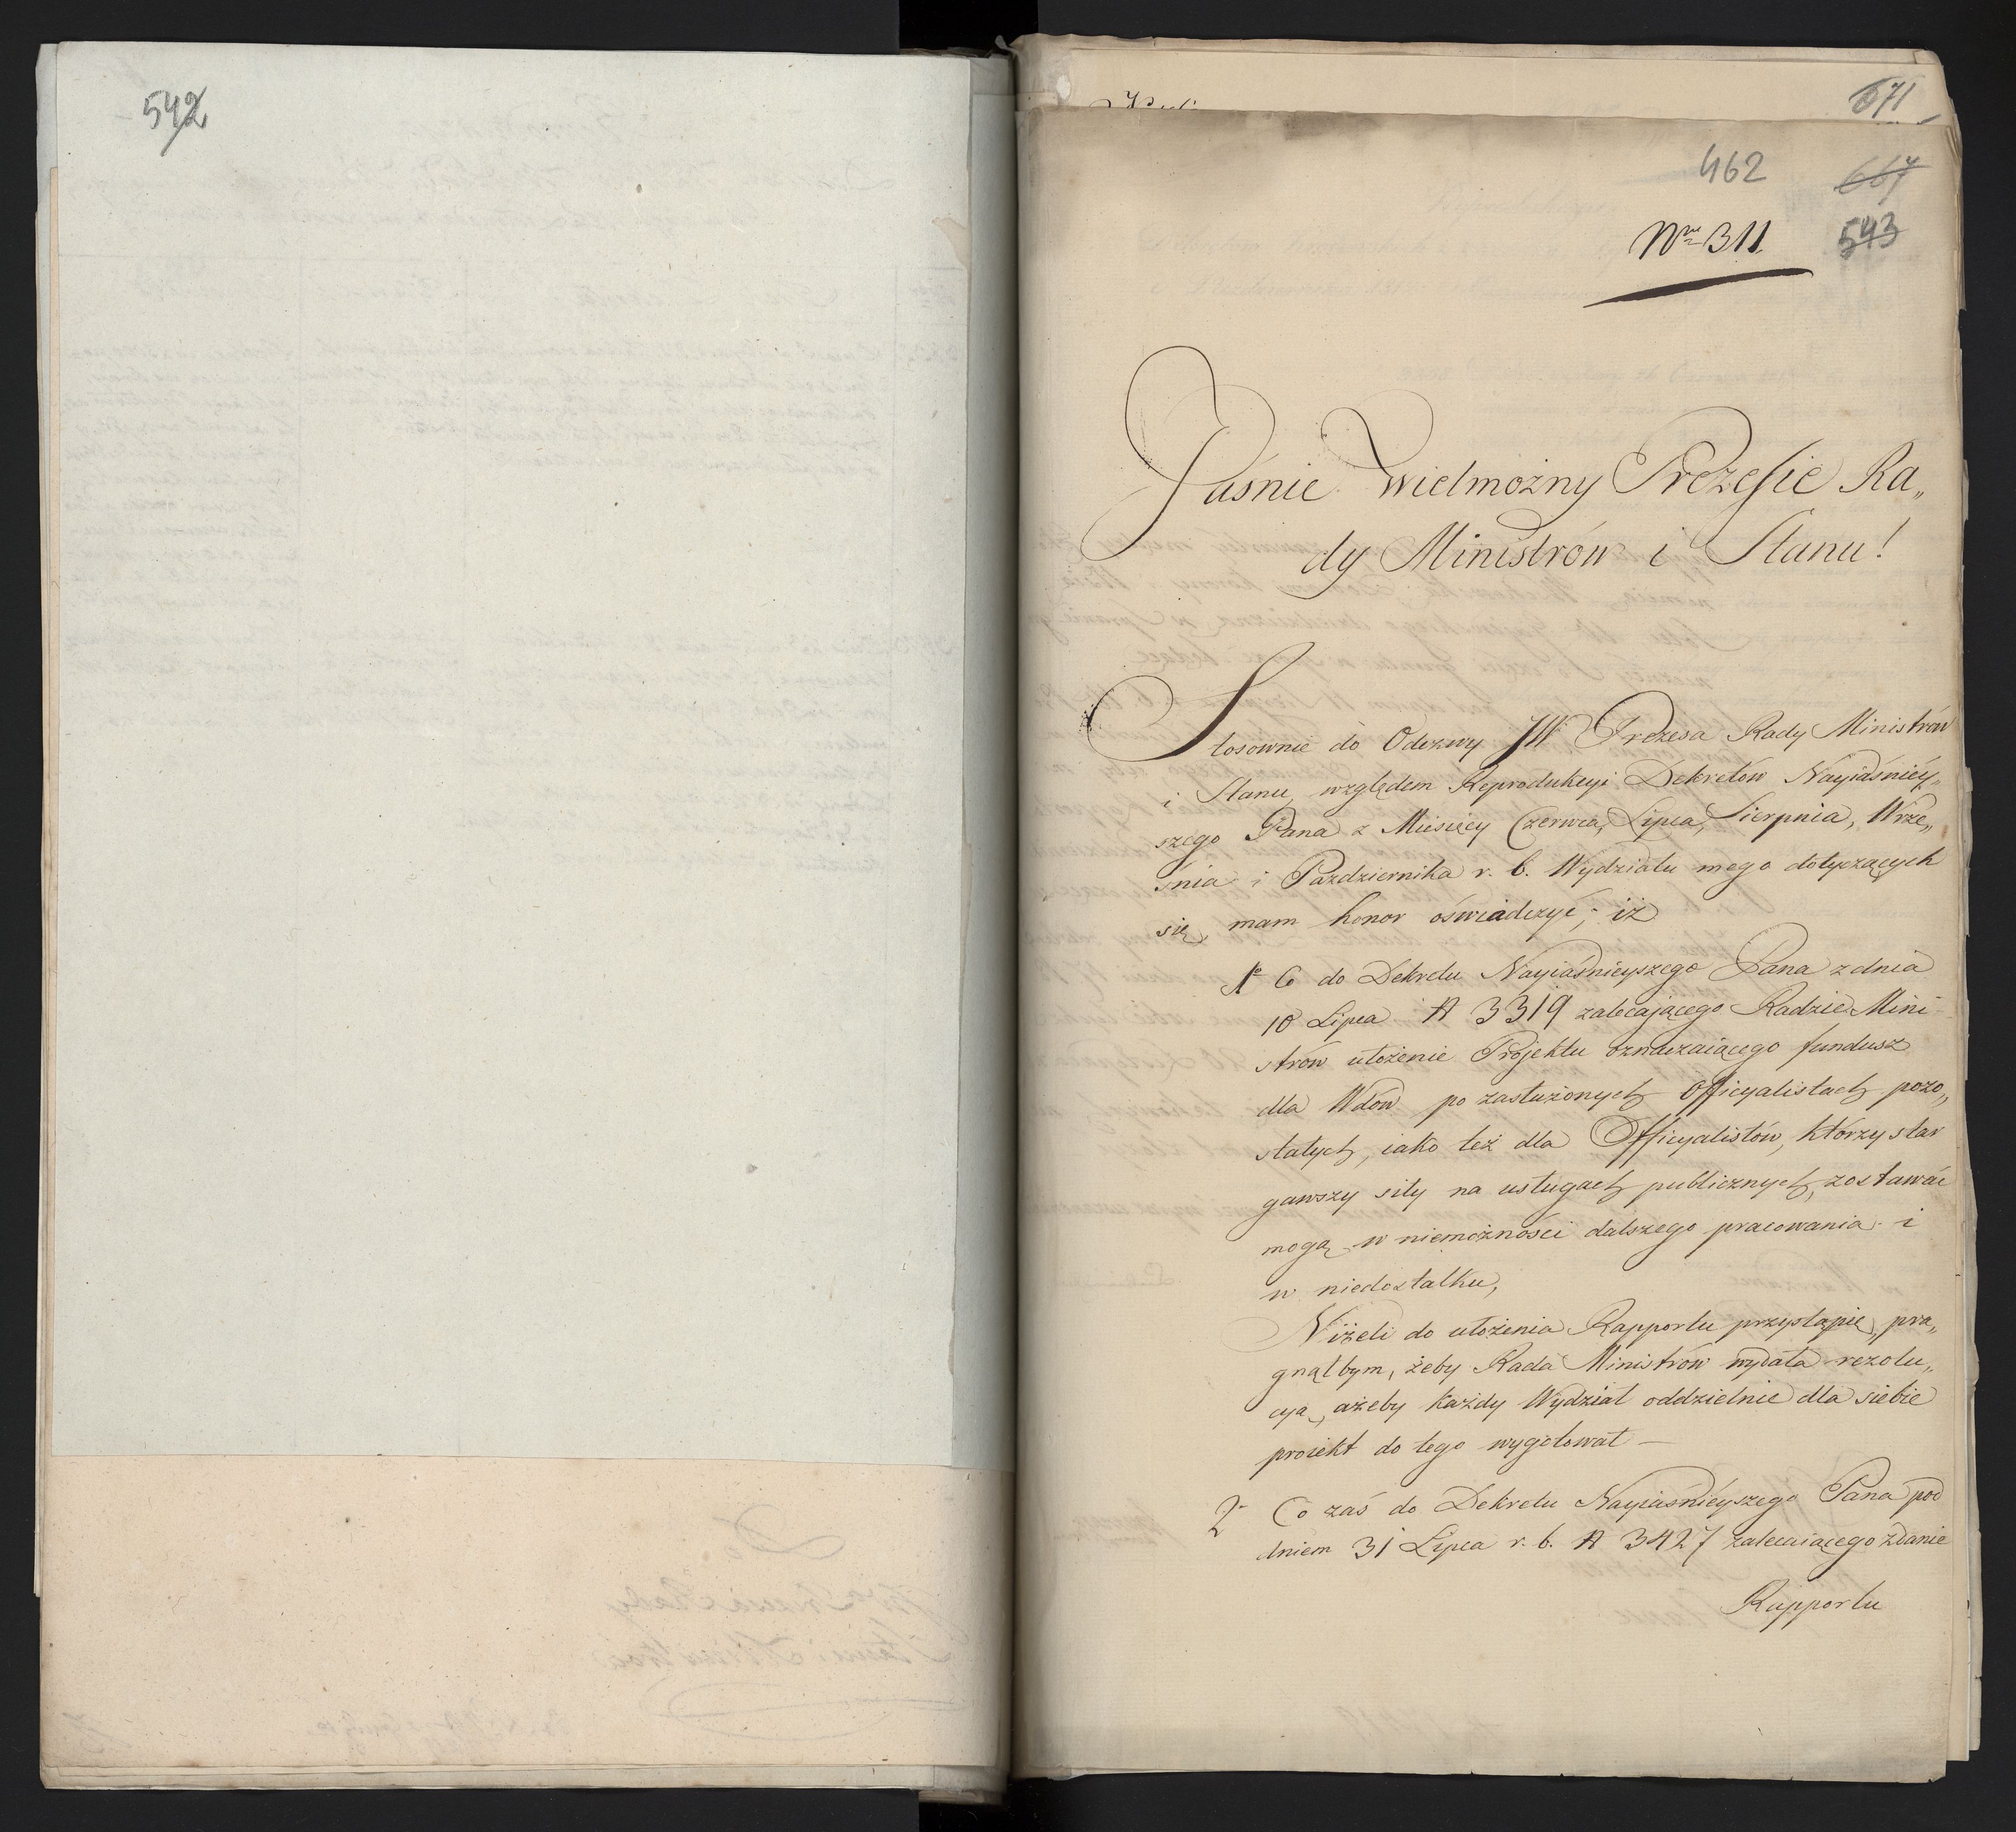 542
671
462
667
Nro 311
543
Jaśnie Wielmożny Prezesie Ra„
dy Ministrów i Stanu!
Stosownie do Odezwy JW Prezesa Rady Ministrów
i Stanu, względem Reprodukcyi Dekretów Nayiaśniey„
szego Pana z Miesięcy Czerwca, Lipca, Sierpnia, Wrze„
śnia i Pazdziernika r. b. Wydziału mego dotyczących
się, mam honor oświadczyć, iż
1o Co do Dekretu Nayiaśnieyszego Pana z dnia
10 Lipca N 3319 zalecaiącego Radzie Mini
strów ułożenie Projektu oznaczaiącego fundusz
dla Wdów po zasłużonych Officyalistach pozo„
stałych, iako też dla Officyalistów, którzy star
gawszy siły na usługach publicznych, zostawać
mogą w niemożności dalszego pracowania i
w niedostatku,
Niżeli do ułożenia Rapportu przystąpię, pra„
gnąłbym, żeby Rada Ministrów wydała rezolu„
cyą, ażeby każdy Wydział oddzielnie dla siebie
proiekt do tego wygotował —
2 Co zaś do Dekretu Nayiaśnieyszego Pana pod
dniem 31 Lipca r. b. N 3427 zalecaiącego zdanie
Rapportu